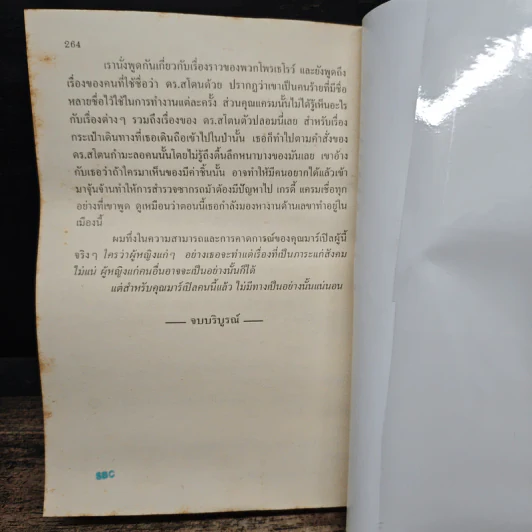 264
เรานั่งพูดกันเกี่ยวกับเรื่องราวของพวกไพรเธโรว์ และยังพูดถึง
เรื่องของคนที่ใช้ชื่อว่า ดร.สโตนด้วย ปรากฏว่าเขาเป็นคนร้ายที่มีชื่อ
หลายชื่อไว้ใช้ในการทำงานแต่ละครั้ง ส่วนคุณแครมนั้นไม่ได้รู้เห็นอะไร
กับเรื่องต่างๆ รวมถึงเรื่องของ ดร.สโตนตัวปลอมนี่เลย สำหรับเรื่อง
กระเป๋าเดินทางที่เธอเดินถือเข้าไปในป่านั้น เธอก็ทำไปตามคำสั่งของ
ดร.สโตนกำมะลอคนนั้นโดยไม่รู้ถึงตื้นลึกหนาบางของมันเลย เขาอ้าง
กับเธอว่าถ้าใครมาเห็นของมีค่าชิ้นนั้น อาจทำให้มีคนอยากได้แล้วเข้า
มาจุ้นจ้านทำให้การสำรวจซากรถม้าต้องมีปัญหาไป เกรดี้ แครมเชื่อทุก
อย่างที่เขาพูด ดูเหมือนว่าตอนนี้เธอกำลังมองหางานด้านเลขาทำอยู่ใน
เมืองนี้
ผมทึ่งในความสามารถและการคาดการณ์ของคุณมาร์เปิลผู้นี้
จริงๆ ใครว่าผู้หญิงแก่ๆ อย่างเธอจะทำแต่เรื่องที่เป็นภาระแก่สังคม
ไม่แน่ ผู้หญิงแก่คนอื่นอาจจะเป็นอย่างนั้นก็ได้
แต่สำหรับคุณมาร์เปิลคนนี้แล้ว ไม่มีทางเป็นอย่างนั้นแน่นอน
—— จบบริบูรณ์ ——
SBC